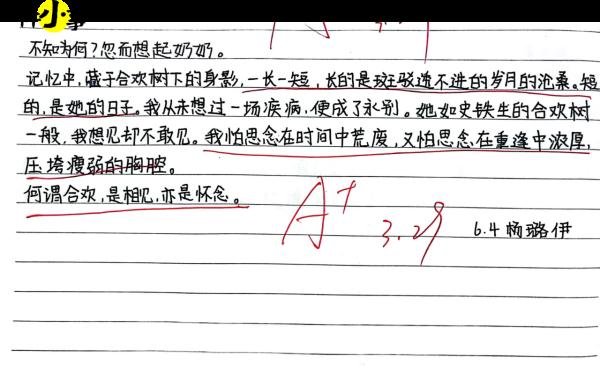 小
不知为何？忽而想起奶奶。
记忆中，藏于合欢树下的身影，一长一短，长的是斑驳透不进的岁月的沧桑。短
的，是她的日子。我从未想过一场疾病，便成了永别。她如史铁生的合欢树
一般，我想见却不敢见。我怕思念在时间中荒废，又怕思念在重逢中浓厚，
压垮瘦弱的胸腔。
何谓合欢，是相见，亦是怀念。
A+ 3.29 6.4 杨璐伊